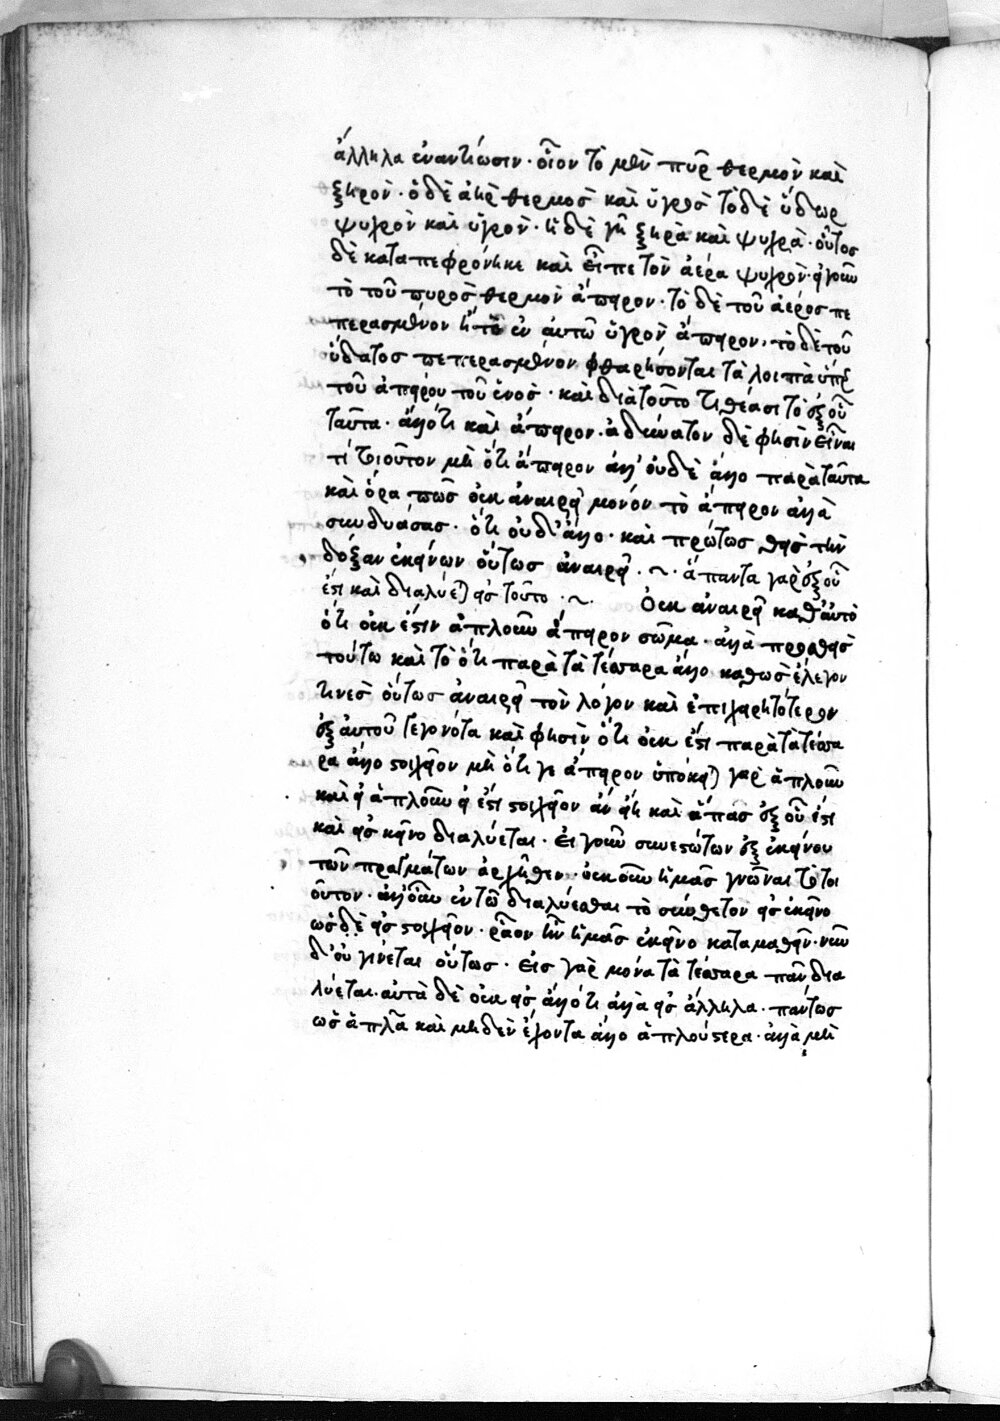 ἄλληλα ἐναντίωσιν· οἷον τὸ μὲν πῦρ θερμὸν καὶ
ξηρόν· ὁ δὲ ἀὴρ θερμὸς καὶ ὑγρὸς τὸ δὲ ὕδωρ
ψυχρὸν καὶ ὑγρόν· ἡ δὲ γῆ ξηρὰ καὶ ψυχρά· οὗτος
δὲ καταπεφρόνηκε καὶ εἶπε τὸν ἀέρα ψυχρόν· εἰ γοῦν
τὸ τοῦ πυρὸς θερμὸν ἄπειρον· τὸ δὲ τοῦ ἀέρος πε
περασμένον ἢ τὸ ἐν αὐτῶ ὑγρὸν ἄπειρον, τὸ δὲ τοῦ
ὕδατος πεπερασμένον φθαρήσονται τὰ λοιπὰ ὑπὸ
τοῦ ἀπείρου τοῦ ἑνός· καὶ διὰ τοῦτο τιθέασι τὸ ἐξ οὗ
ταῦτα· ἄλλό τι καὶ ἄπειρον· ἀδύνατον δέ φησιν εἶναι
τί τοιοῦτον μὴ ὅτι ἄπειρον ἀλλ' οὐδὲ ἄλλο παρὰ ταῦτα
καὶ ὅρα πῶς οὐκ ἀναιρεῖ μόνον τὸ ἄπειρον ἀλλὰ
συνδυάσας· ὅτι οὐδ' ἄλλο· καὶ πρώτως θεὶς τὴν
δόξαν ἐκείνων οὕτως ἀναιρεῖ· ~ · ἅπαντα γὰρ ἐξ οὗ
ἐστὶ καὶ διαλύεται εἰς τοῦτο · ~ · Οὐκ ἀναιρεῖ καθ' αὑτὸ
ὅτι οὐκ ἔστιν ἁπλοῦν ἄπειρον σῶμα· ἀλλὰ προσθεὶς
τούτω καὶ τὸ ὅτι παρὰ τὰ τέσσαρα ἄλλο καθὼς ἔλεγον
τινὲς οὕτως ἀναιρεῖ τὸν λόγον καὶ ἐπιχειρητότερον
ἐξ αὐτοῦ γεγονότα καὶ φησὶν ὅτι οὐκ ἔστι παρὰ τὰ τέσσα
ρα ἄλλο στοιχεῖον μὴ ὅτι γε ἄπειρον ὑπόκειται γὰρ ἁπλοῦν
καὶ εἰ ἁπλοῦν εἰ ἔστι στοιχεῖον ἂν εἴη καὶ ἅπας ἐξ οὗ ἐστι
καὶ εἰς κεῖνο διαλύεται· εἰ γοῦν συνεστώτων ἐξ ἐκείνου
τῶν πραγμάτων ἀρχῆθεν· οὐκ οὖν ἡμᾶς γνῶναι τὸ τοι
οῦτον· ἀλλ' οὖν ἐν τῶ διαλύεσθαι τὸ σύνθετον εἰς ἐκεῖνο
ὡς δὲ εἰς στοιχεῖον· ῥᾷον ἦν ἡμᾶς ἐκεῖνο καταμαθεῖν· νῦν
δ' οὐ γίνεται οὕτως· εἰς γὰρ μόνα τὰ τέσσαρα πᾶν δια
λύεται· αὐτὰ δὲ οὐκ εἰς ἄλλό τι ἀλλὰ εἰς ἄλληλα· πάντως
ὡς ἁπλᾶ καὶ μηδὲν ἔχοντα ἄλλο ἁπλούστερα· ἀλλὰ μὴ